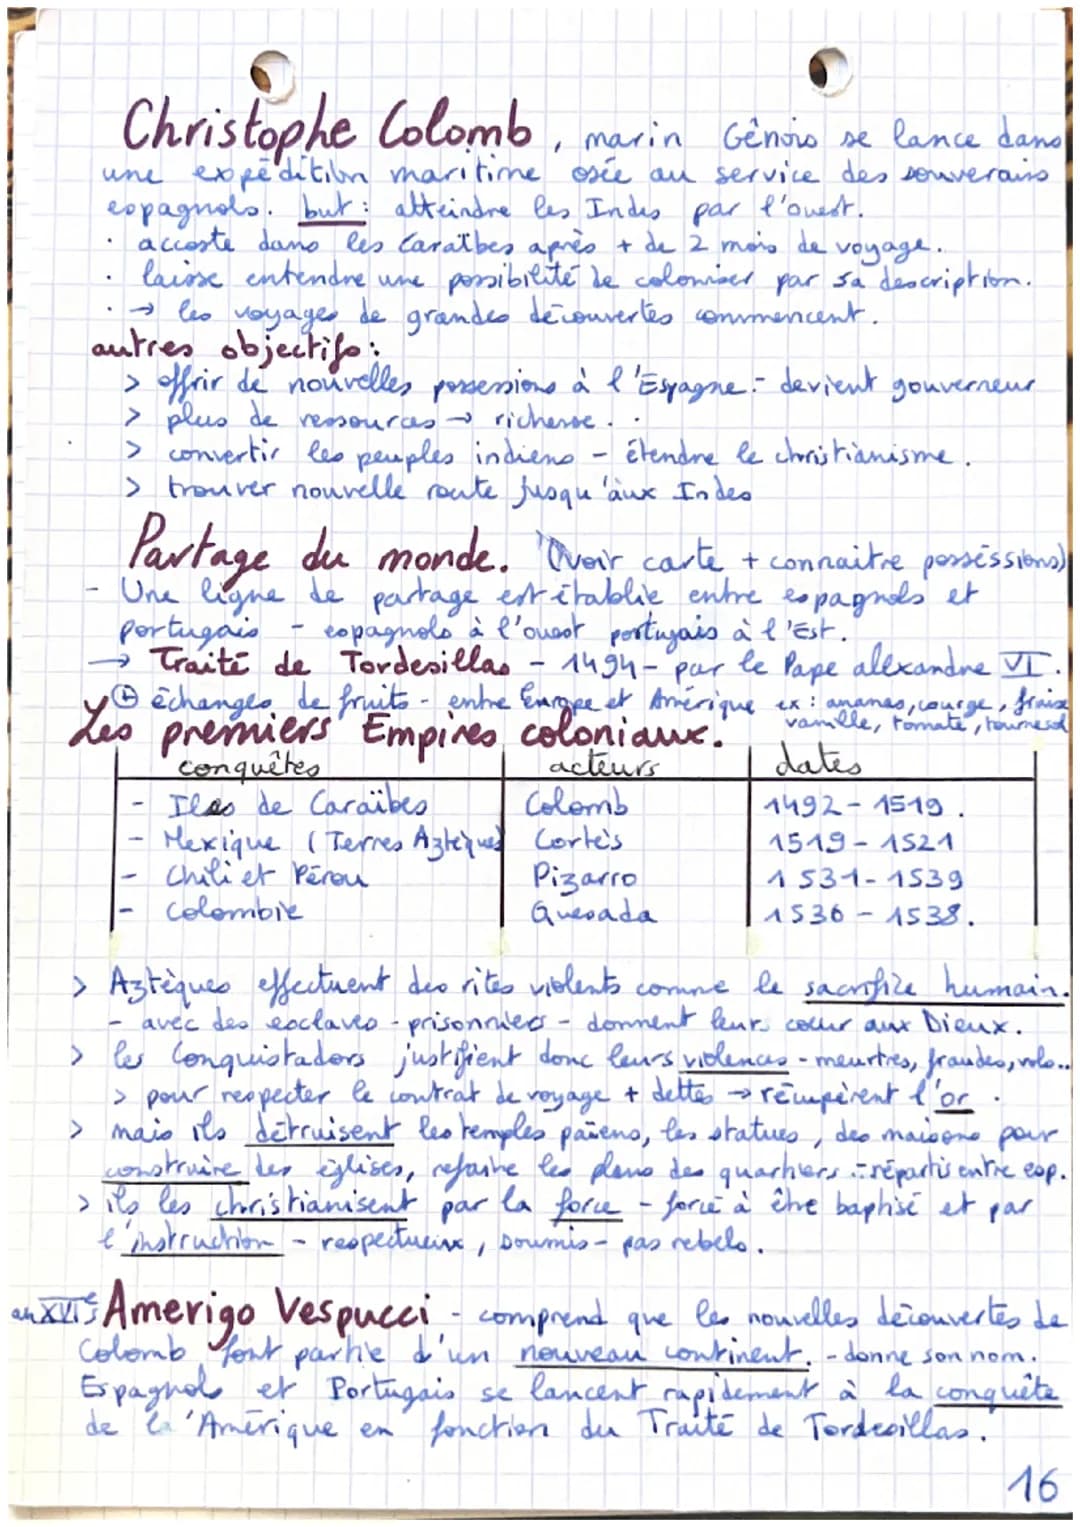 Christophe Colomb, marin Génois se lance dans
une expédition maritime osée au service des souverains
espagnols. but : atteindre les Indes par l'ouest.
· accoste dans les Caraïbes après + de 2 mois de voyage.
· laisse entendre une possibilité de coloniser par sa description.
· → les voyages de grandes découvertes commencent.
autres objectifs :
> offrir de nouvelles possessions à l'Espagne - devient gouverneur
> plus de ressources → richesse.
> convertir les peuples indiens - étendre le christianisme.
> trouver nouvelle route jusqu'aux Indes
Partage du monde. (voir carte + connaitre posséssions)
- Une ligne de partage est établie entre espagnols et
portugais - espagnols à l'ouest portugais à l'Est.
→ Traité de Tordesillas - 1494 - par le Pape allexandre VI.
échanges de fruits - entre Europe et Amérique ex : ananas, courge, fraise
vanille, tomate, tournesol
Les premiers Empires coloniaux.
conquêtes acteurs dates
- Iles de Caraïbes Colomb 1492 - 1519.
- Mexique (Terres Aztèques) Cortès 1519 - 1521
- Chili et Pérou Pizarro 1531 - 1539
- Colombie Quesada 1536 - 1538.
> Aztèques effectuent des rites violents comme le sacrifice humain.
- avec des esclaves - prisonniers - donnent leurs cœur aux Dieux.
> les Conquistadors justifient donc leurs violences - meurtres, fraudes, vols..
> pour respecter le contrat de voyage + dettes → récupèrent l'or.
> mais ils détruisent les temples païens, les statues, des maisons pour
construire des églises, refaire les plans des quartiers - répartis entre esp.
> ils les christianisent par la force - forcé à être baptisé et par
l'instruction - respectueux, soumis - pas rebels.
au XVIe s Amerigo Vespucci - comprend que les nouvelles découvertes de
Colomb font partie d'un nouveau continent. - donne son nom.
Espagnols et Portugais se lancent rapidement à la conquête
de l'Amérique en fonction du Traité de Tordesillas.
16